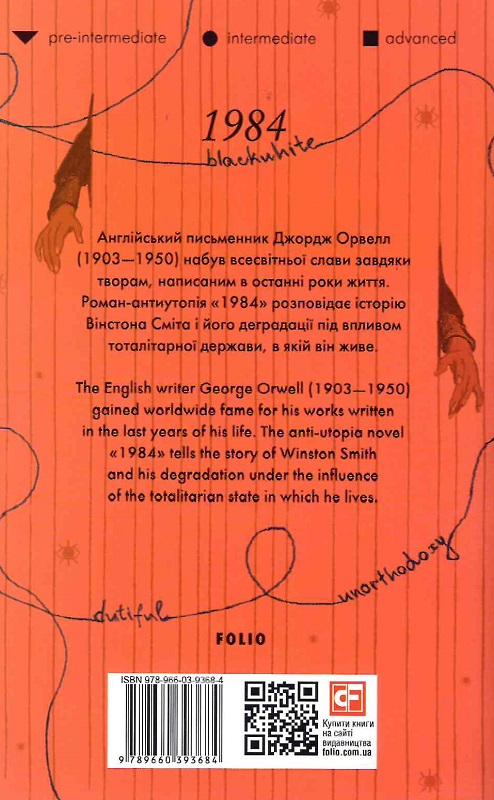 pre-intermediate intermediate advanced
1984
blackwhite
Англійський письменник Джордж Орвелл
(1903—1950) набув всесвітньої слави завдяки
творам, написаним в останні роки життя.
Роман-антиутопія «1984» розповідає історію
Вінстона Сміта і його деградації під впливом
тоталітарної держави, в якій він живе.
The English writer George Orwell (1903—1950)
gained worldwide fame for his works written
in the last years of his life. The anti-utopia novel
«1984» tells the story of Winston Smith
and his degradation under the influence
of the totalitarian state in which he lives.
unorthodoxy
dutiful
FOLIO
ISBN 978-966-03-9368-4
9 789660 393684
Купити книги
на сайті
видавництва
folio.com.ua